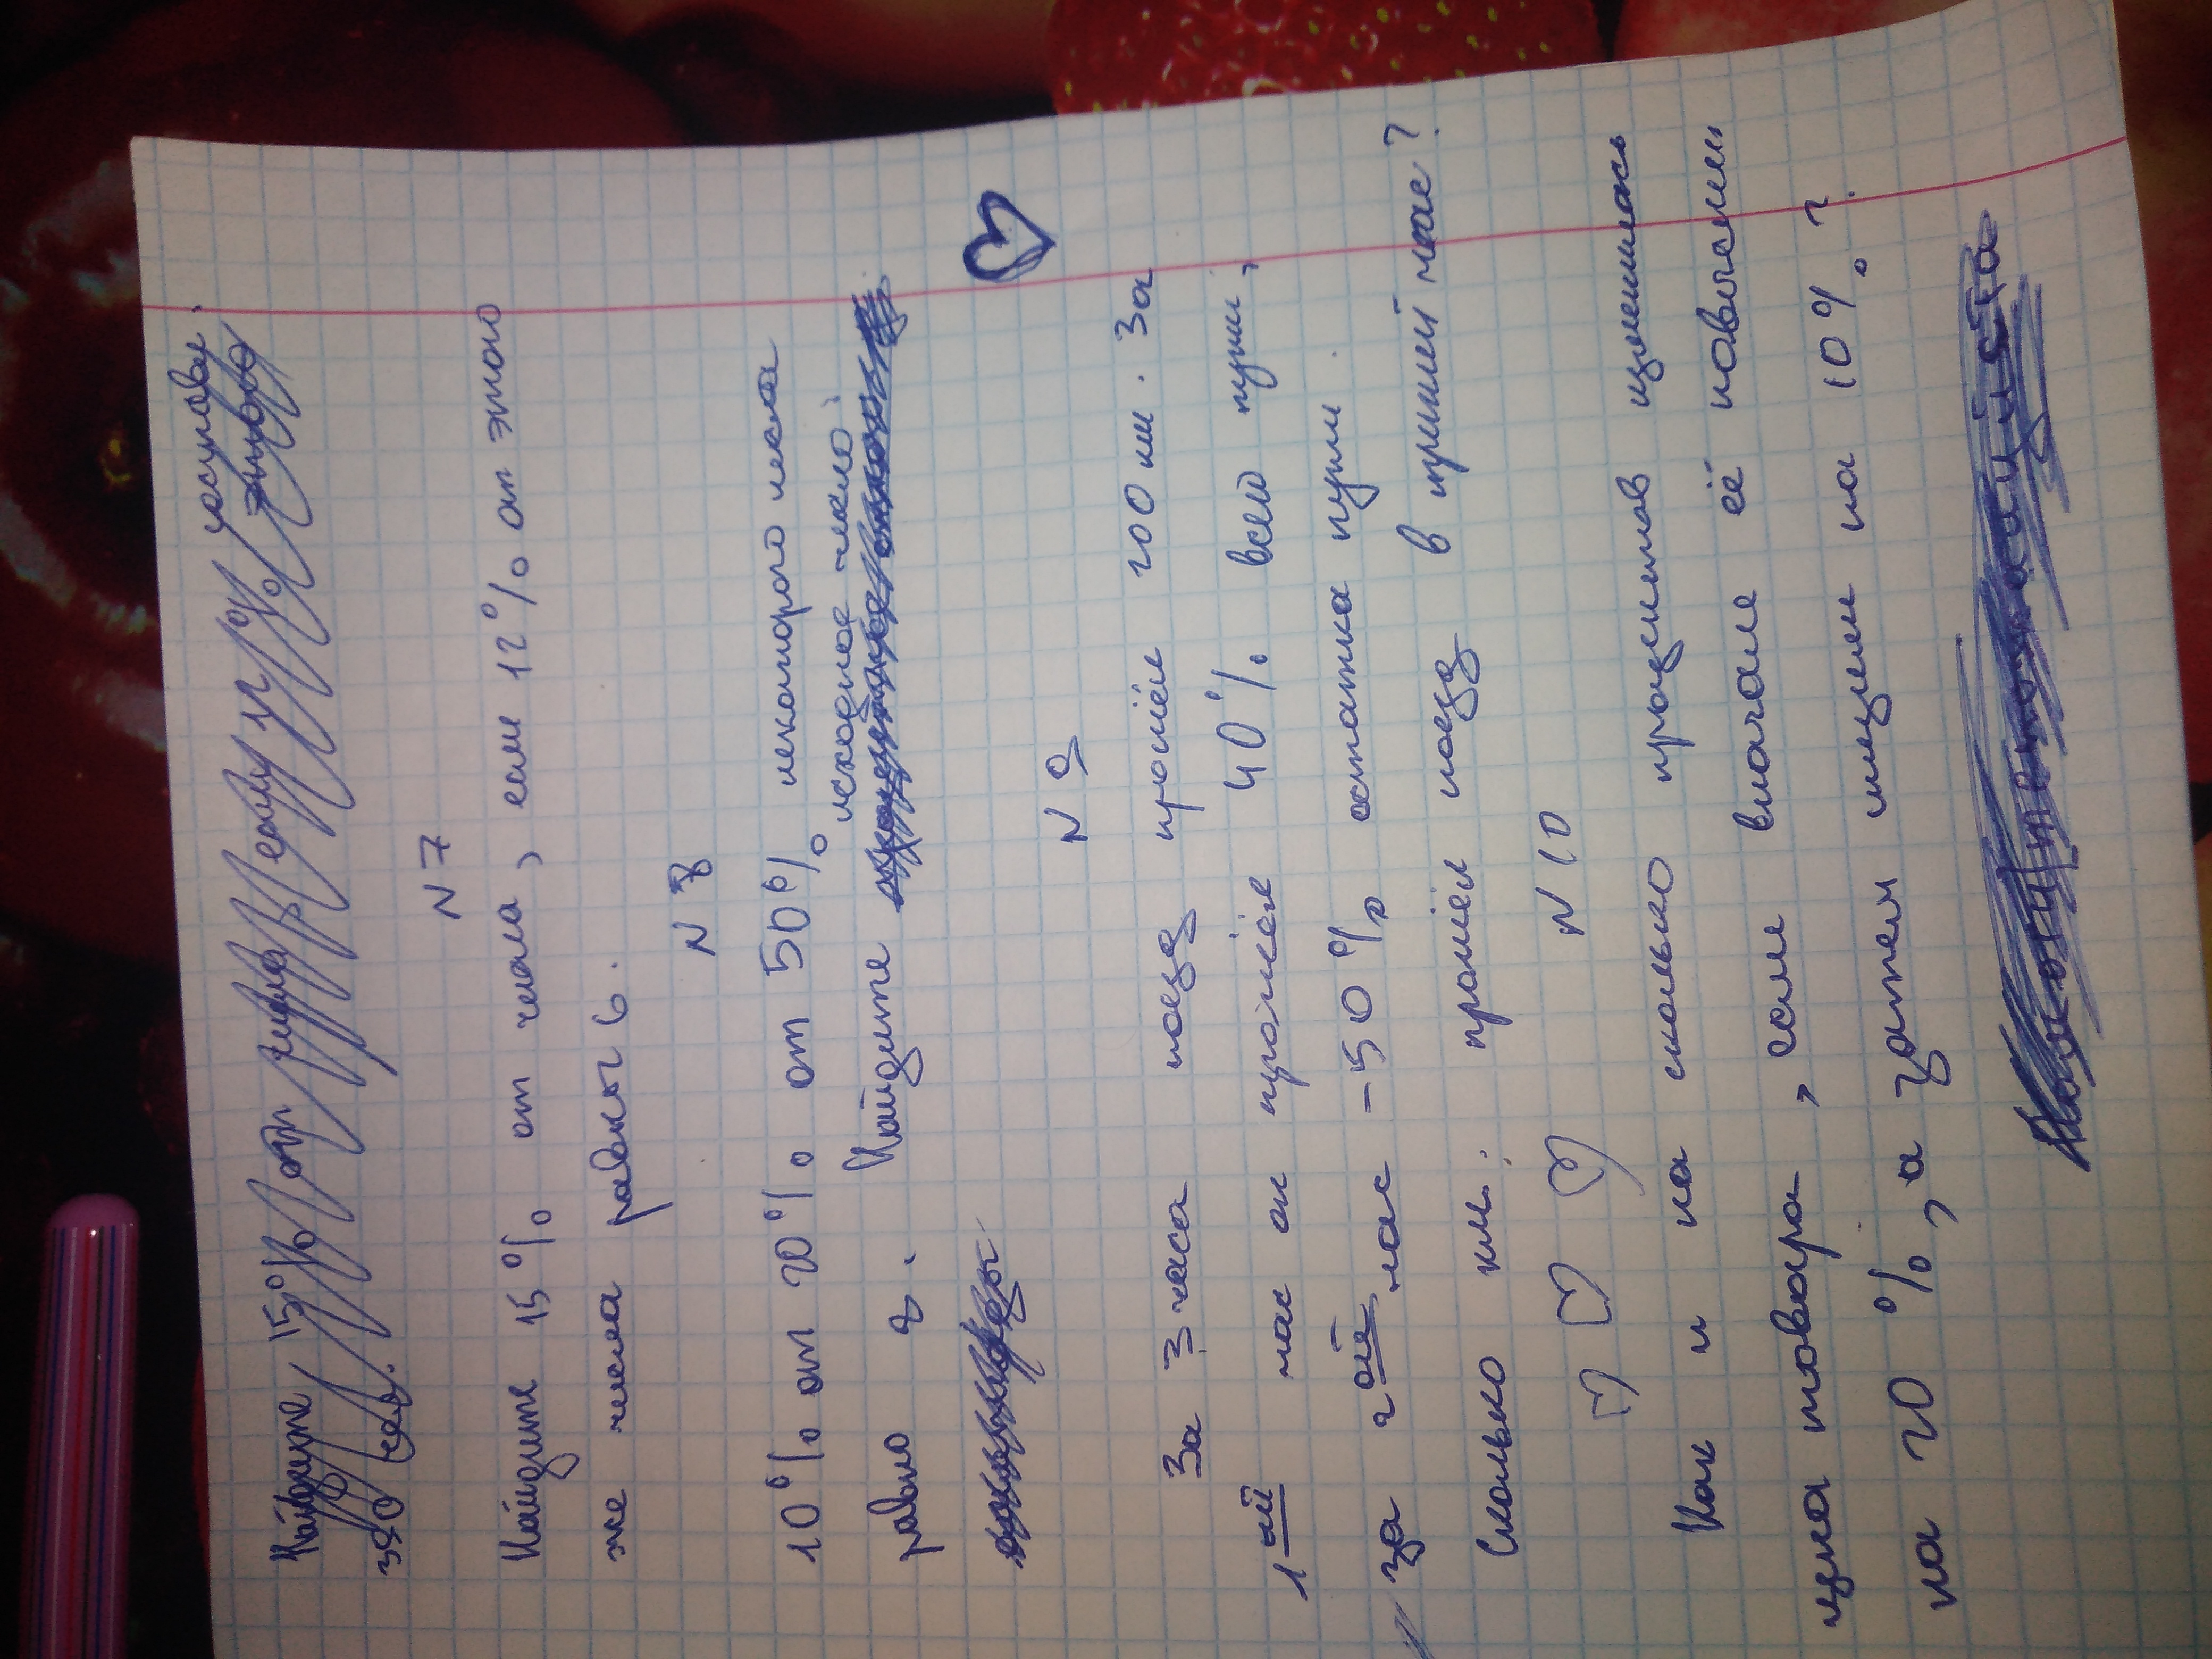 Найдите 15% от числа, если 7%
этого
N 7
Найдите 15% от числа, если 12% от этого
же числа равны 6.
N 8
10% от 20% от 50% некоторого числа
равно 8. Найдите исходное число.
N 9
За 3 часа поезд прошёл 200 км. За
1ый час он прошёл 40% всего пути,
за 2ой час - 50% остатка пути.
Сколько км. прошёл поезд в третий час?
N 10
Как и на сколько процентов изменилась
цена товара, если вначале её повысили
на 20%, а затем снизили на 10%?